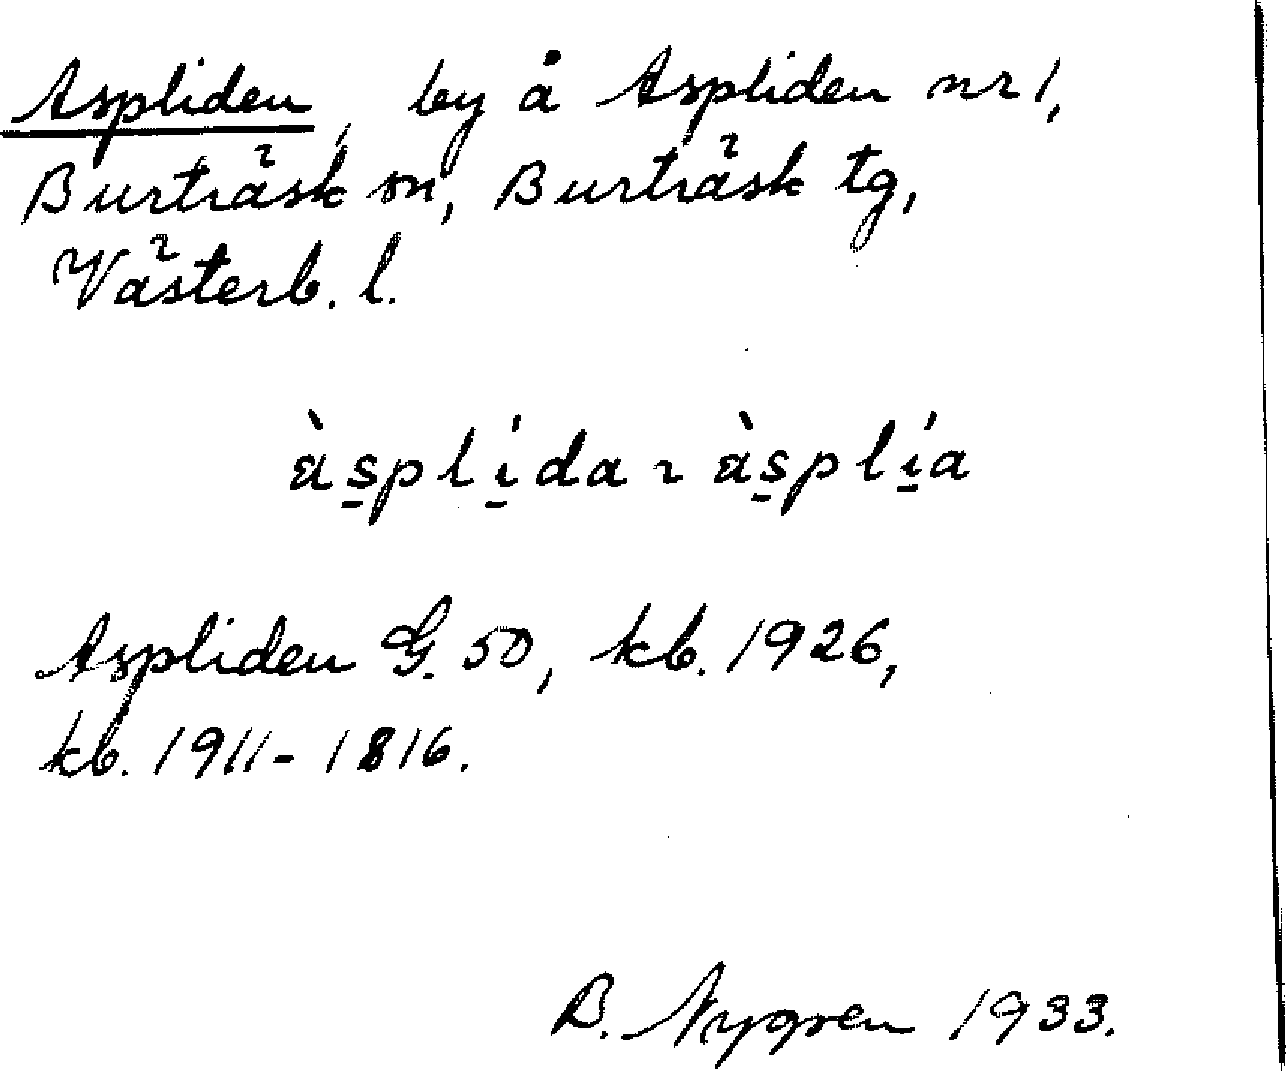 Aspliden, by å Aspliden nr 1,
Burträsk sn, Burträsk tg,
Västerb. l.
às̱plí̱da ~ às̱plí̱a
Aspliden G. 50, kb. 1926,
kb. 1911-1816.
B. Nygren 1933.